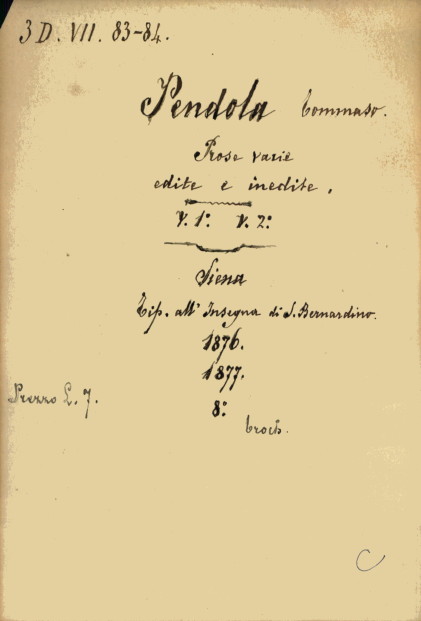 3 D. VII. 83-84.
Pendola Tommaso.
Prose varie
edite e inedite.
V. 1º. V. 2º.
Siena
Tip. all' Insegna di S. Bernardino.
1876.
1877.
Prezzo L. 7.
8º.
broch.
C